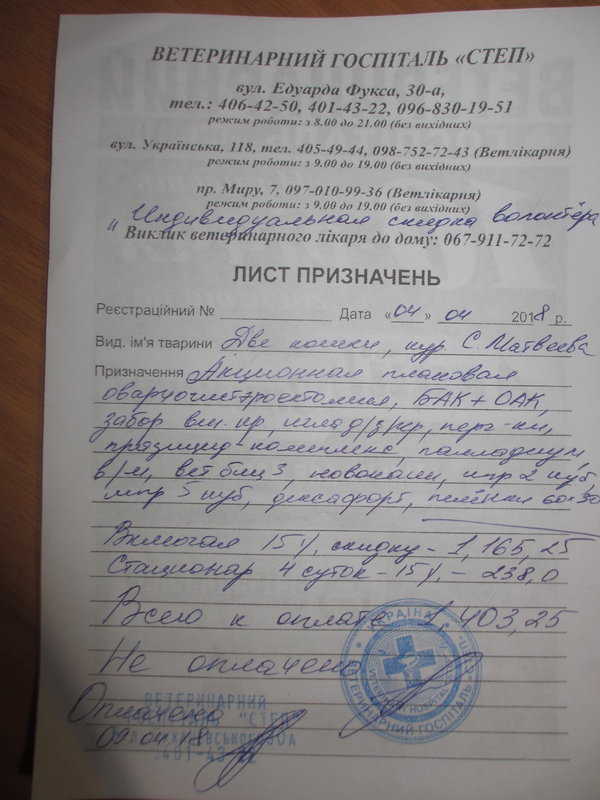 ВЕТЕРИНАРНИЙ ГОСПІТАЛЬ «СТЕП»
вул. Едуарда Фукса, 30-а,
тел.: 406-42-50, 401-43-22, 096-830-19-51
режим роботи: з 8.00 до 21.00 (без вихідних)
вул. Українська, 118, тел. 405-49-44, 098-752-72-43 (Ветлікарня)
режим роботи: з 9.00 до 19.00 (без вихідних)
пр. Миру, 7, 097-010-99-36 (Ветлікарня)
режим роботи: з 9.00 до 19.00 (без вихідних)
" Индивидуальная скидка волонтёра
Виклик ветеринарного лікаря до дому: 067-911-72-72
ЛИСТ ПРИЗНАЧЕНЬ
Реєстраційний № Дата «04» 04 2018 р.
Вид, ім'я тварини Две кошки, кур С. Матвеева
Призначення Акционная плановая
овариогистроектомия, БАК + ОАК,
забор вен. кр, перч-ки,
празицид-комплекс, палладиум
в/м, вет биц 3, новокаин, шпр 2 куб,
шпр 5 куб, дексафорт, пелёнки 60*30
Включая 15% скидку - 1,165,25
Стационар 4 суток - 15% - 238,0
Всего к оплате 1,403,25
Не оплачено
УКРАЇНА
ВЕТЕРИНАРНИЙ ГОСПІТАЛЬ
Оплачено
09 04 18
ВЕТЕРИНАРНИЙ
"СТЕП"
30А